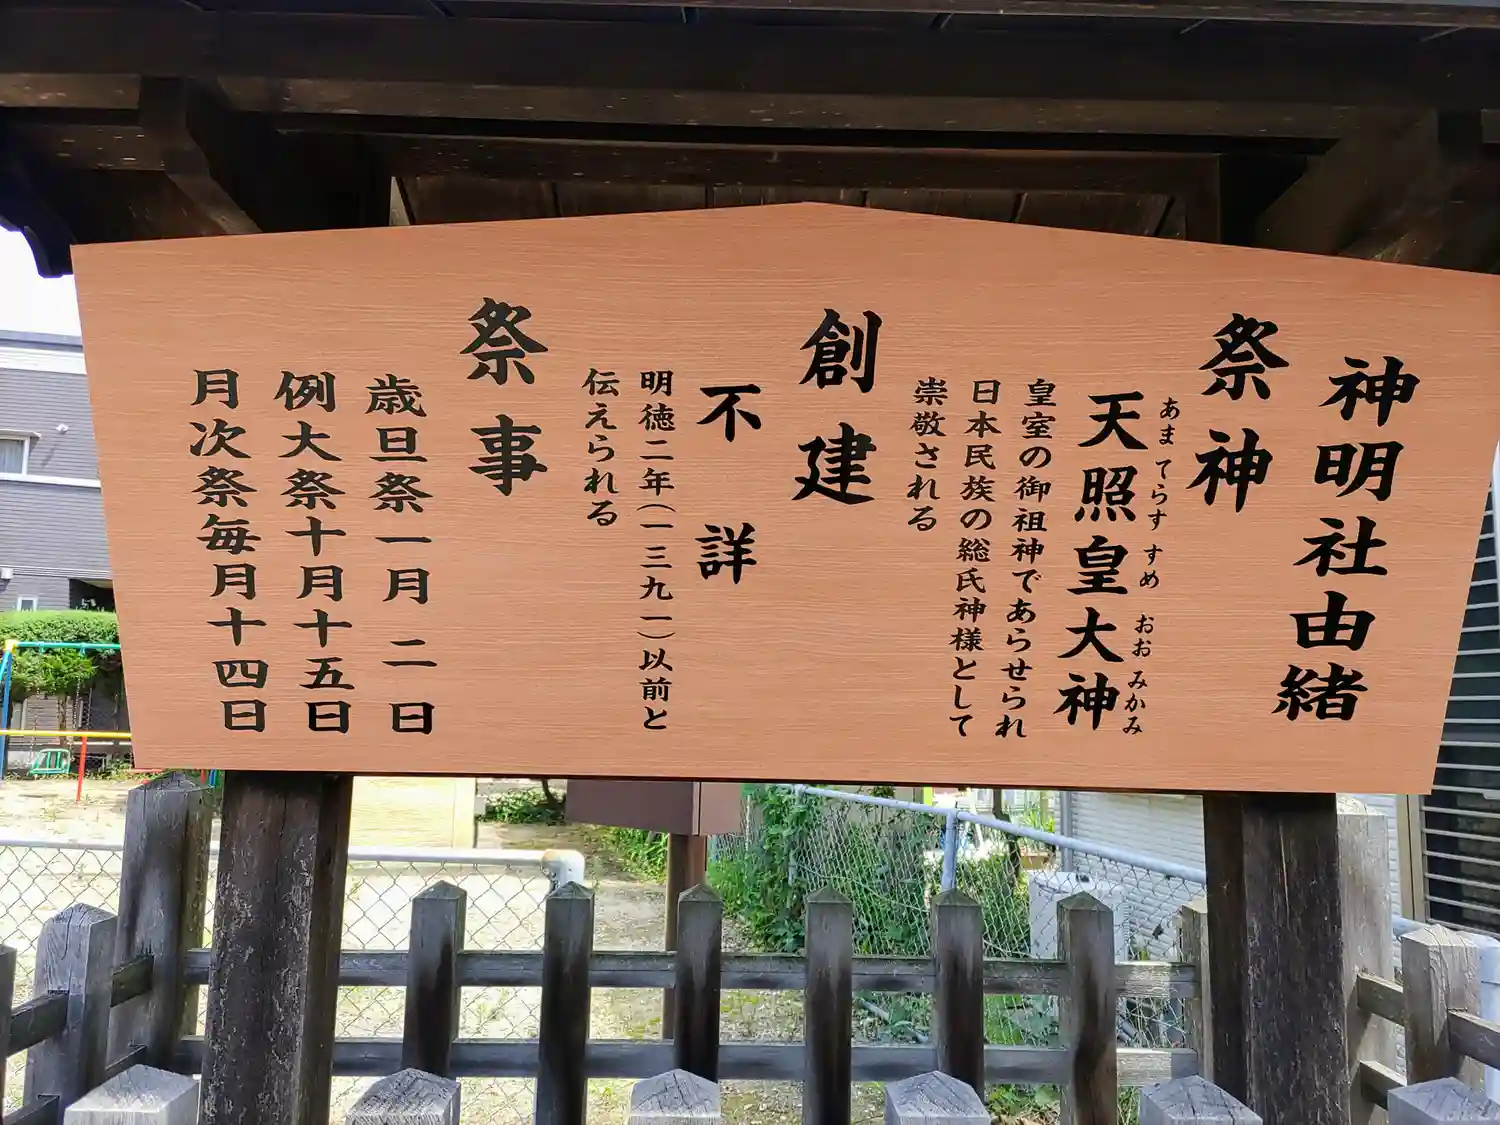 神明社由緒
祭神
天照皇大神
あまてらすすめおおみかみ
皇室の御祖神であらせられ
日本民族の総氏神様として
崇敬される
創建
不詳
明徳二年(一三九一)以前と
伝えられる
祭事
歳旦祭一月二日
例大祭十月十五日
月次祭毎月十四日